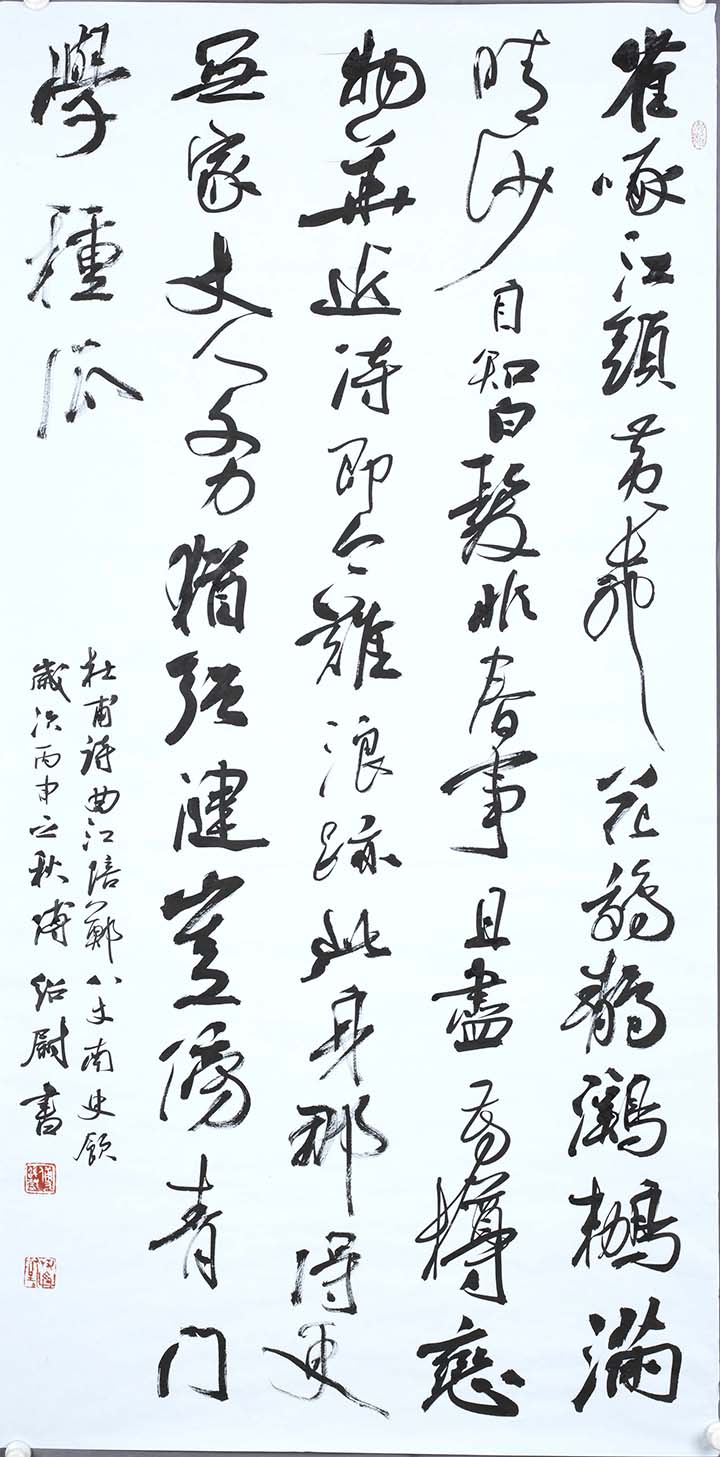 雀啄江頭黄柳花鵁鶄鸂鶒滿
晴沙自知白髮非春事且盡芳樽戀
物華近侍即今難浪跡此身那得更
無家丈人文力猶强健豈傍青門
學種瓜
杜甫詩曲江陪鄭八丈南史飲
歲次丙申之秋傅紹尉書